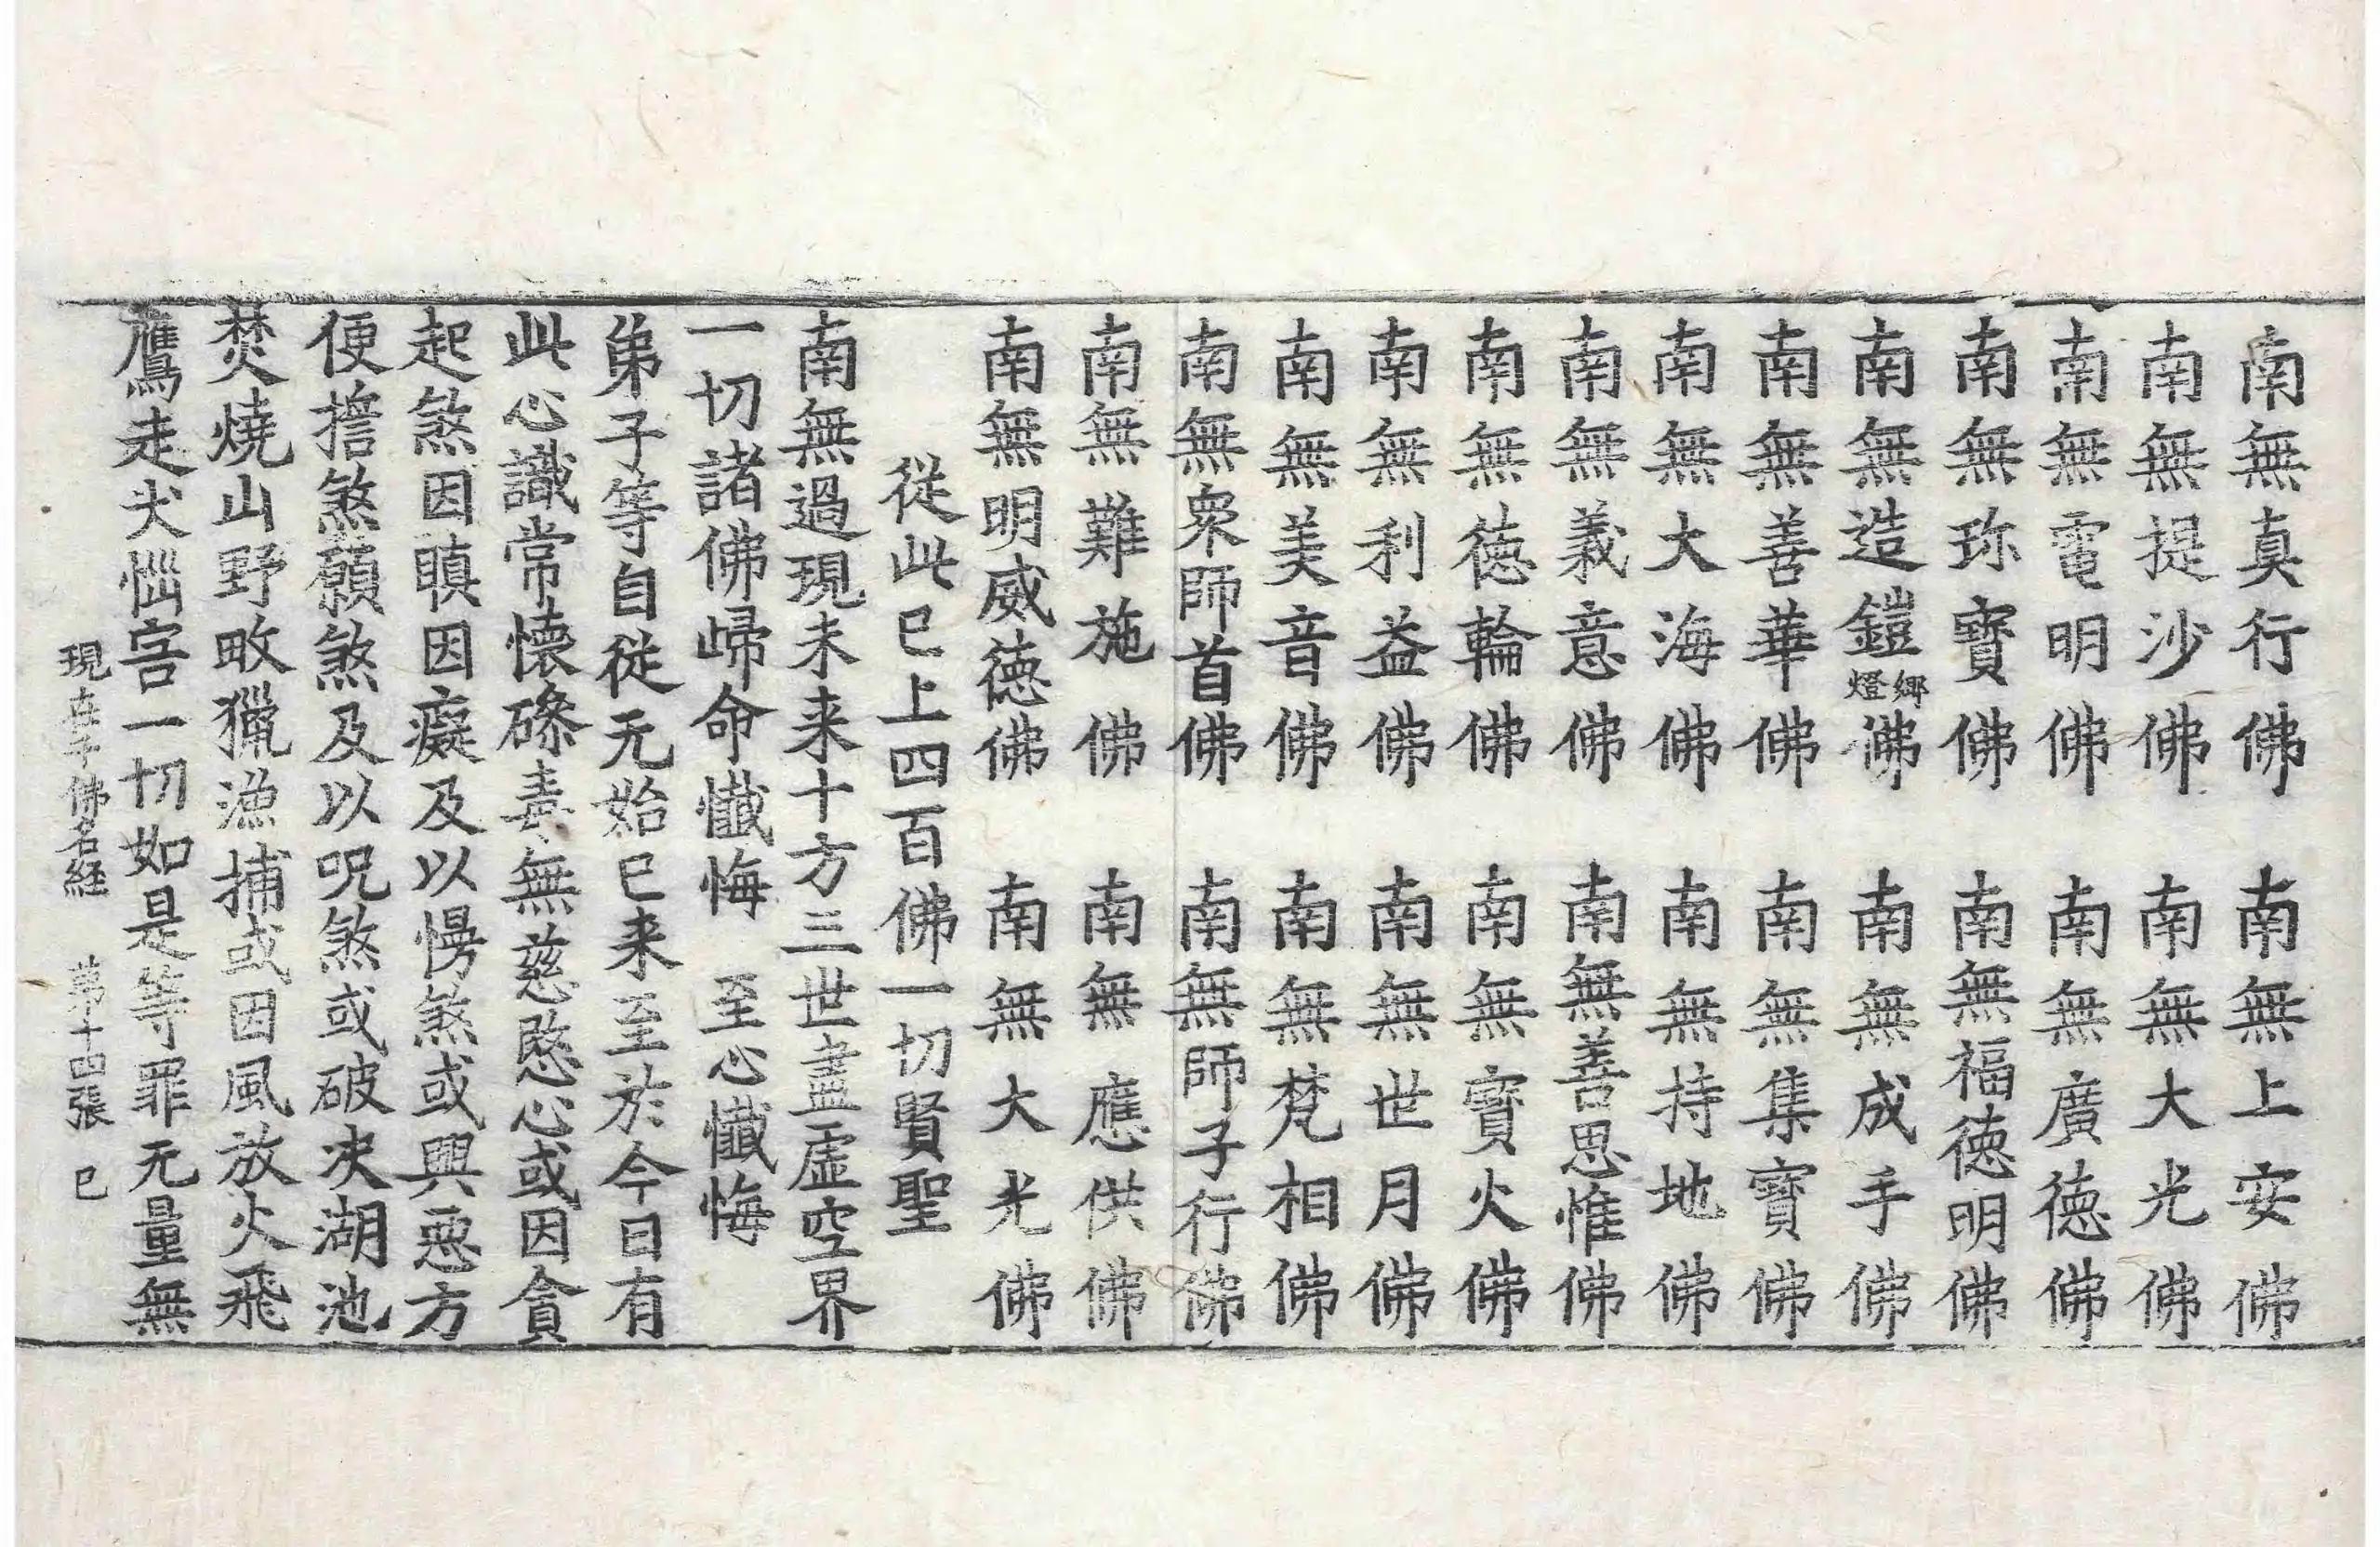 南無真行佛　南無上安佛
南無提沙佛　南無大光佛
南無電明佛　南無廣德佛
南無珎寶佛　南無福德明佛
南無造鎧鄉燈佛　南無成手佛
南無善華佛　南無集寶佛
南無大海佛　南無持地佛
南無義意佛　南無善思惟佛
南無德輪佛　南無寶火佛
南無利益佛　南無世月佛
南無美音佛　南無梵相佛
南無衆師首佛　南無師子行佛
南無難施佛　南無應供佛
南無明威德佛　南無大光佛
從此已上四百佛一切賢聖
南無過現未来十方三世盡虛空界
一切諸佛歸命懺悔　至心懺悔
弟子等自從无始已来至於今日有
此心識常懷磣毒無慈愍心或因貪
起煞因瞋因癡及以慢煞或興惡方
便擔煞願煞及以呪煞或破決湖池
焚燒山野畋獵漁捕或因風放火飛
鷹走犬惱害一切如是等罪无量無
現在千佛名經　第十四張　巳